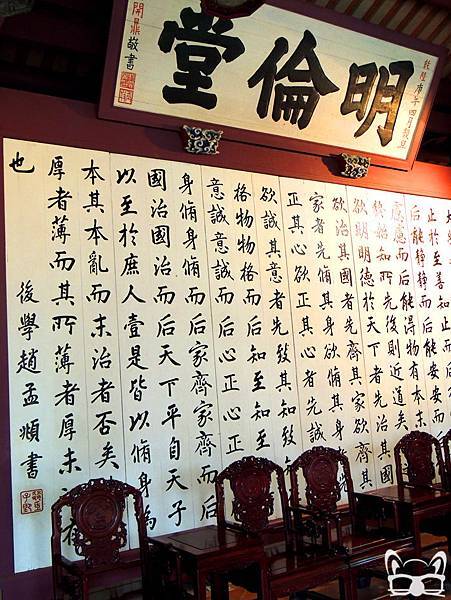 明倫堂
乾隆庚午年四月穀旦
開鼎敬書
止於至善知止而后
后能靜靜而后能安安而
慮慮而后能得物有本末
終始知所先後則近道矣
欲明明德於天下者先治其國
欲治其國者先齊其家欲齊其
家者先脩其身欲脩其身者
正其心欲正其心者先誠
欲誠其意者先致其知致知
格物物格而后知至知至
意誠意誠而后心正心正
身脩身脩而后家齊家齊而后
國治國治而后天下平自天子
以至於庶人壹是皆以脩身為
本其本亂而末治者否矣
厚者薄而其所薄者厚未之有
也
後學趙孟頫書